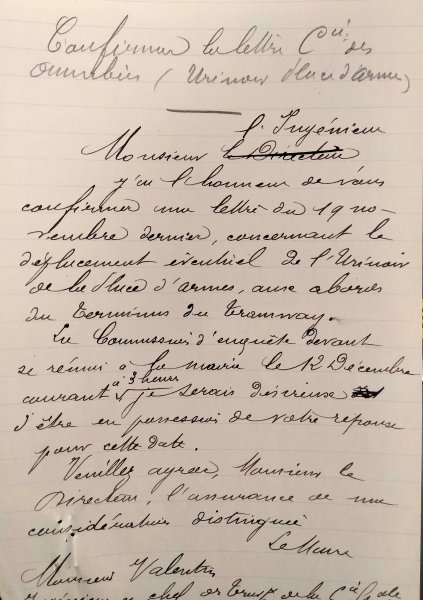 Confirmer la lettre Cie des
Omnibus (Urinoir Place d'armes)
l'Ingénieur
Monsieur le Directeur
j'ai l'honneur de vous
confirmer ma lettre du 19 no-
vembre dernier, concernant le
déplacement éventuel de l'Urinoir
de la Place d'armes, aux abords
du Terminus du Tramway.
La Commission d'enquête devant
se réunir à la mairie le 12 Décembre
à 3 heures
courant je serais désireux
d'être en possession de votre réponse
pour cette date.
Veuillez agréer, Monsieur le
Directeur, l'assurance de ma
considération distinguée
Le Maire
Monsieur Valentin
en chef de la Cie